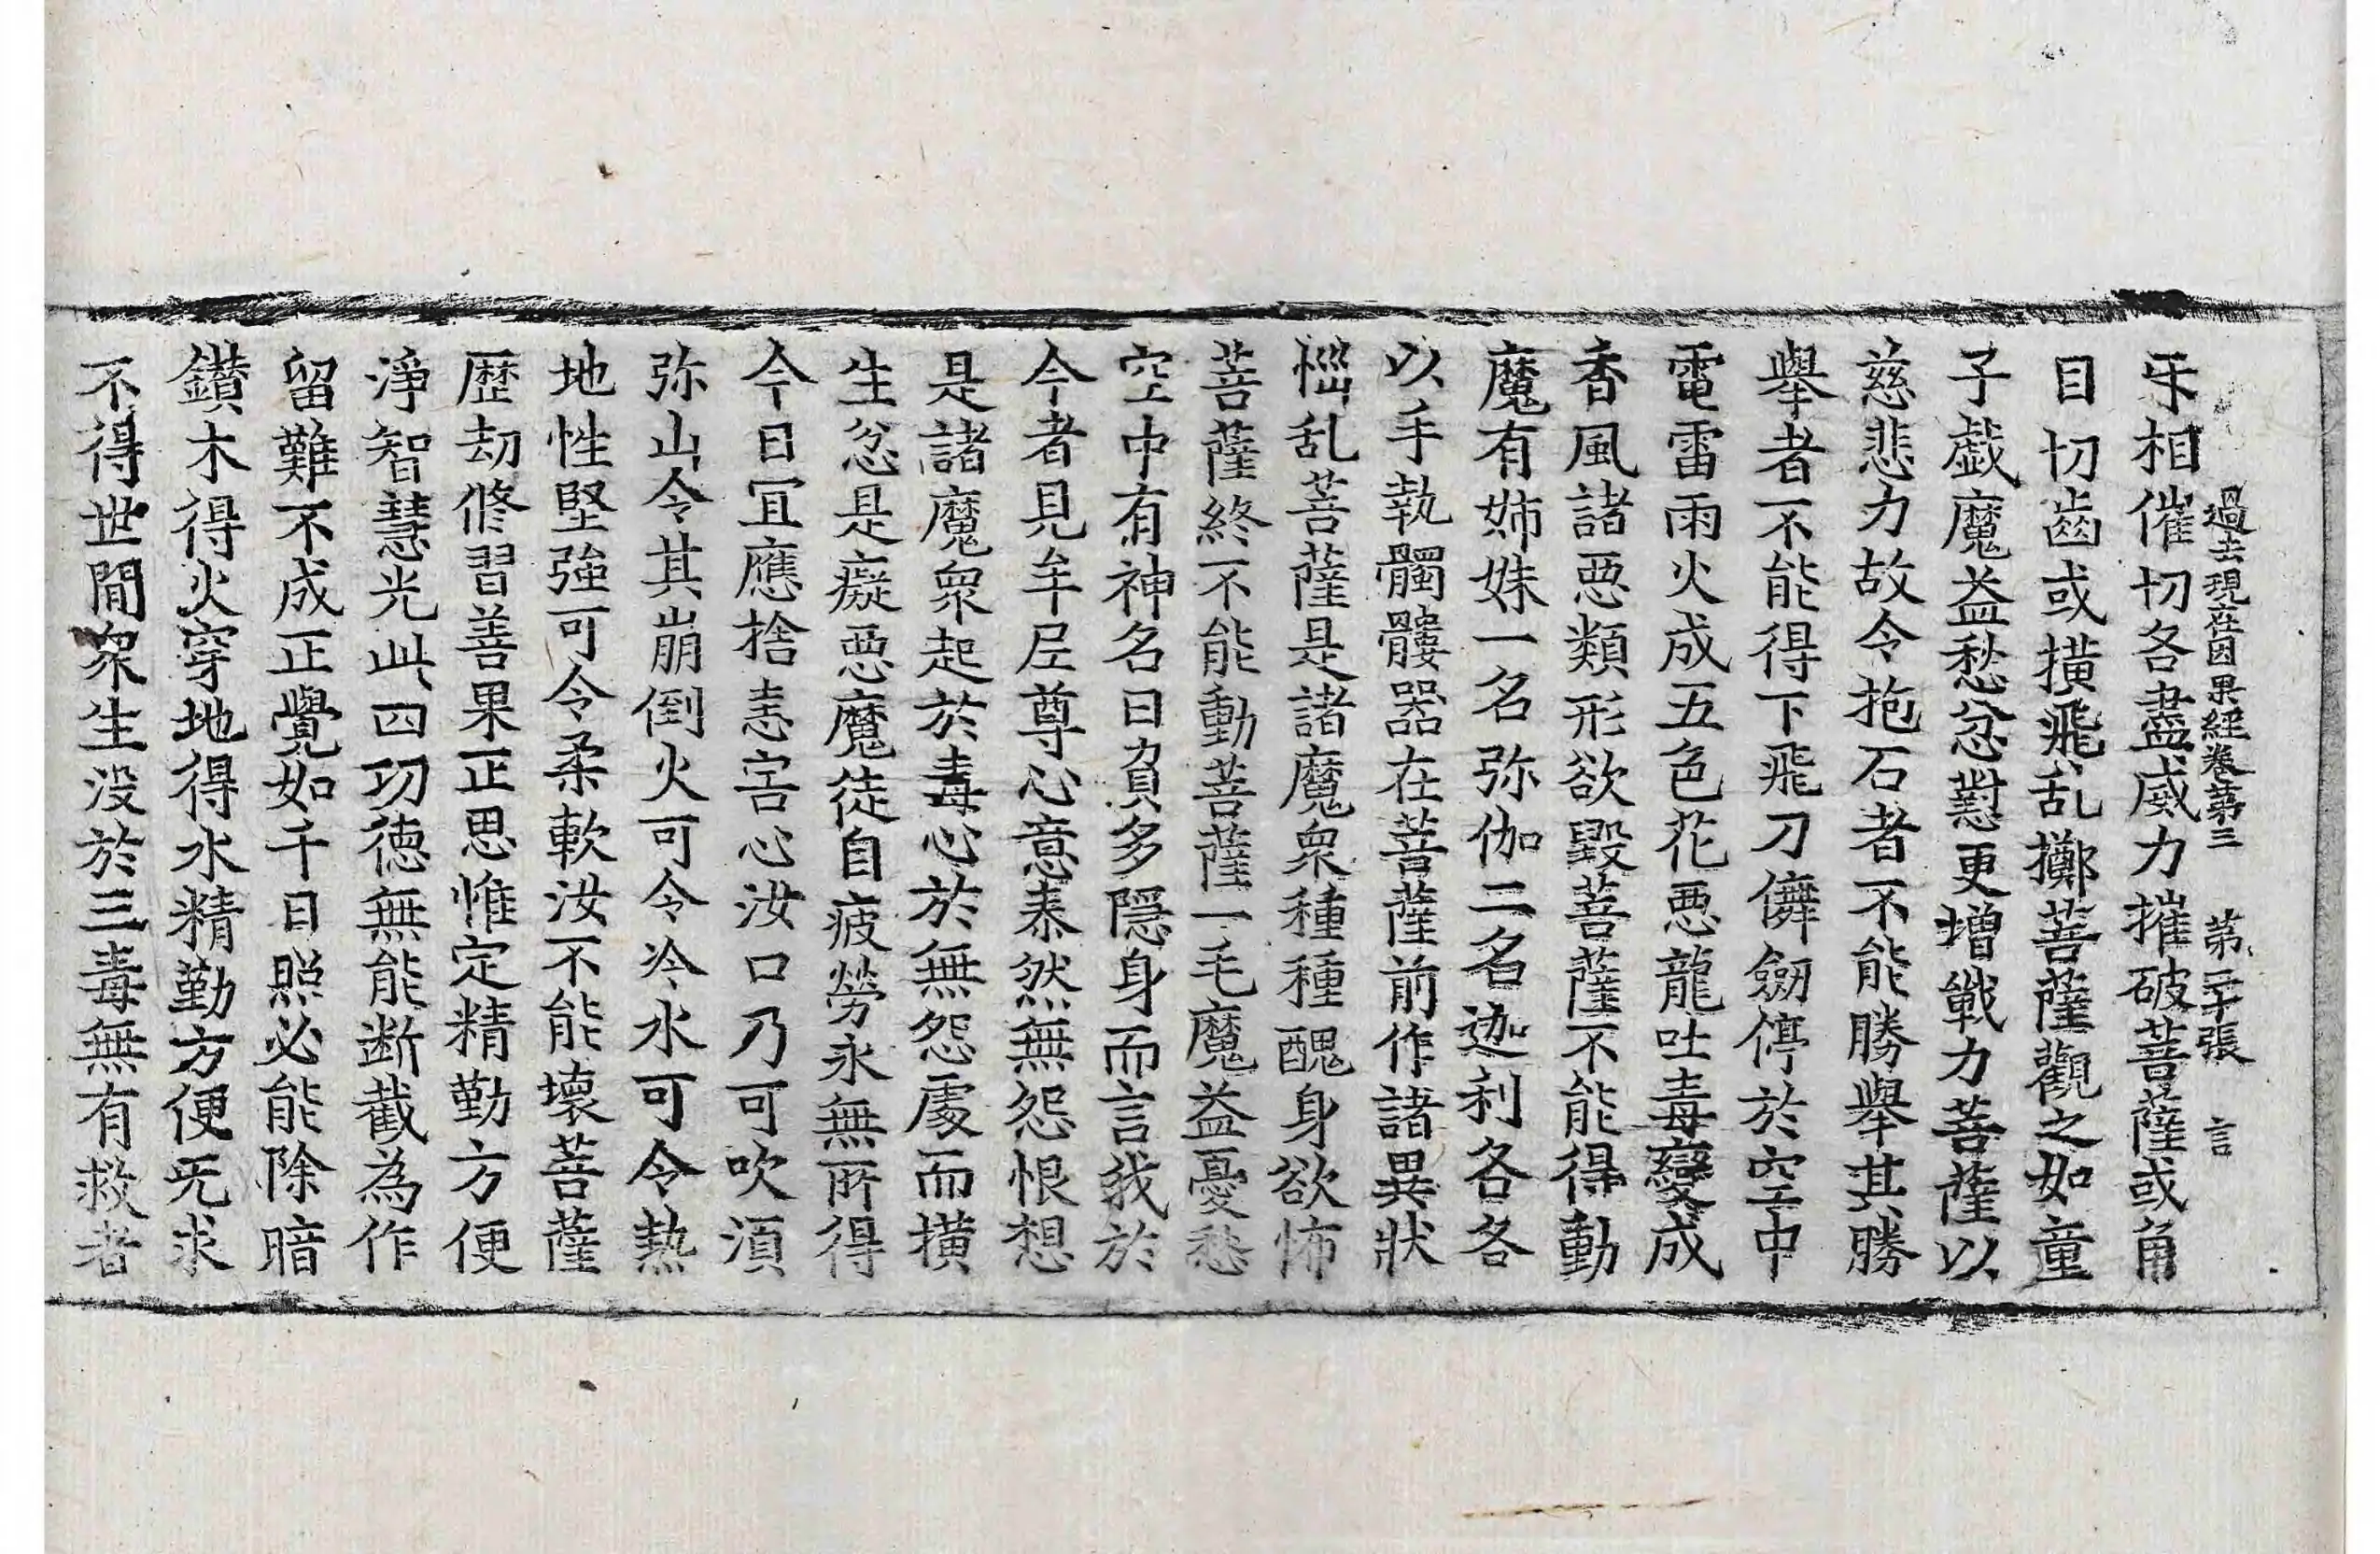 過去現在因果經卷第三　第二十張　言
㸦相催切各盡威力摧破菩薩或角
目切齒或橫飛乱擲菩薩觀之如童
子戱魔益愁忿懟更增戰力菩薩以
慈悲力故令抱石者不能勝舉其勝
舉者不能得下飛刀儛劒停於空中
電雷雨火成五色花惡龍吐毒變成
香風諸惡類形欲毀菩薩不能得動
魔有姉妹一名弥伽二名迦利各各
以手執髑髏器在菩薩前作諸異狀
惱乱菩薩是諸魔衆種種醜身欲怖
菩薩終不能動菩薩一毛魔益憂愁
空中有神名曰負多隱身而言我於
今者見牟尼尊心意泰然無怨恨想
是諸魔衆起於毒心於無怨處而橫
生忿是癡惡魔徒自疲勞永無所得
今日冝應捨恚害心汝口乃可吹湏
弥山令其崩倒火可令冷水可令熱
地性堅強可令柔軟汝不能壞菩薩
歷劫修習善果正思惟定精勤方便
淨智慧光此四功德無能断截為作
留難不成正覺如千日照必能除暗
鑽木得火穿地得水精勤方便无求
不得世間衆生没於三毒無有救者